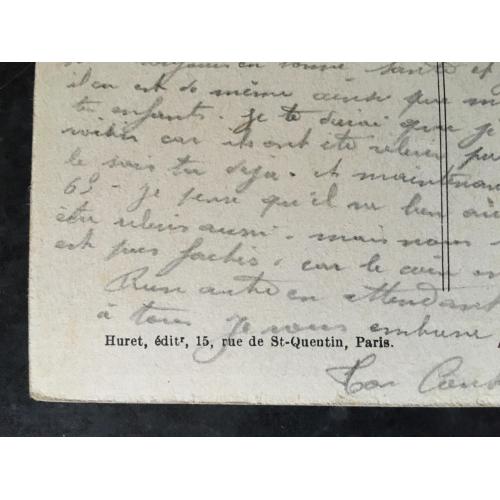 toujours en bonne santé et
il en est de même ainsi que m
tes enfants. je te dirai que j'
car ils ont été relevés par
le sais tu déjà. et maintenan
6e. Je pense qu'il va bien
être relevés aussi. mais nous
est pas fachés, car le coin
Rien autre en attendant
à tous je vous embrasse
Huret, éditr, 15, rue de St-Quentin, Paris.
Ton